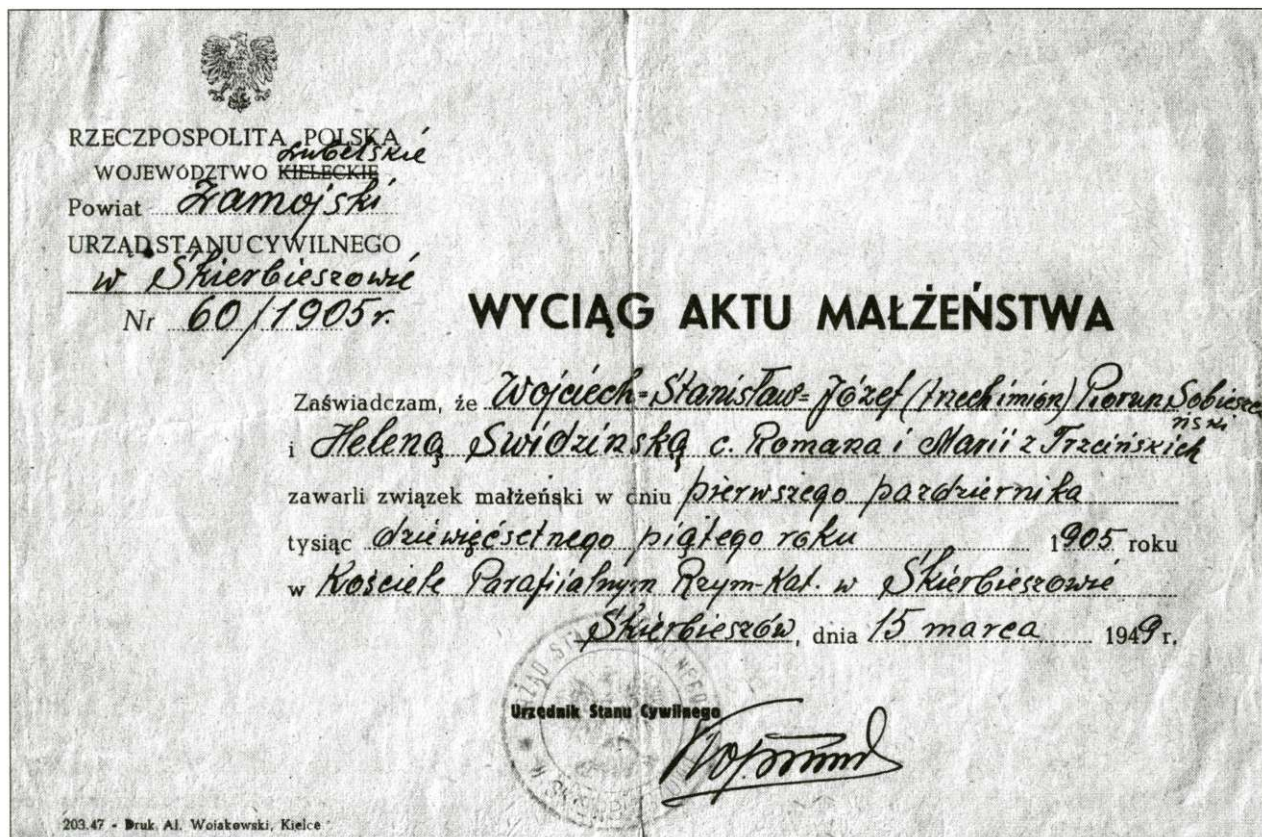 RZECZPOSPOLITA POLSKA
Lubelskie
WOJEWÓDZTWO KIELECKIE
Powiat Zamojski
URZĄD STANU CYWILNEGO
w Skierbieszowie
Nr 60/1905 r.
WYCIĄG AKTU MAŁŻEŃSTWA
Zaświadczam, że Wojciech=Stanisław=Józef (trzech imion) Piorun Sobieszcz
ński
i Heleną Swidzinską c. Romana i Marii z Trzcińskich
zawarli związek małżeński w dniu pierwszego pazdziernika
tysiąc dziewięćsetnego piątego roku 1905 roku
w Kościele Parafiialnym Rzym-Kat. w Skierbieszowie
Skierbieszów, dnia 15 marca 1949 r.
Urzędnik Stanu Cywilnego
203.47 - Druk Al. Wojakowski, Kielce